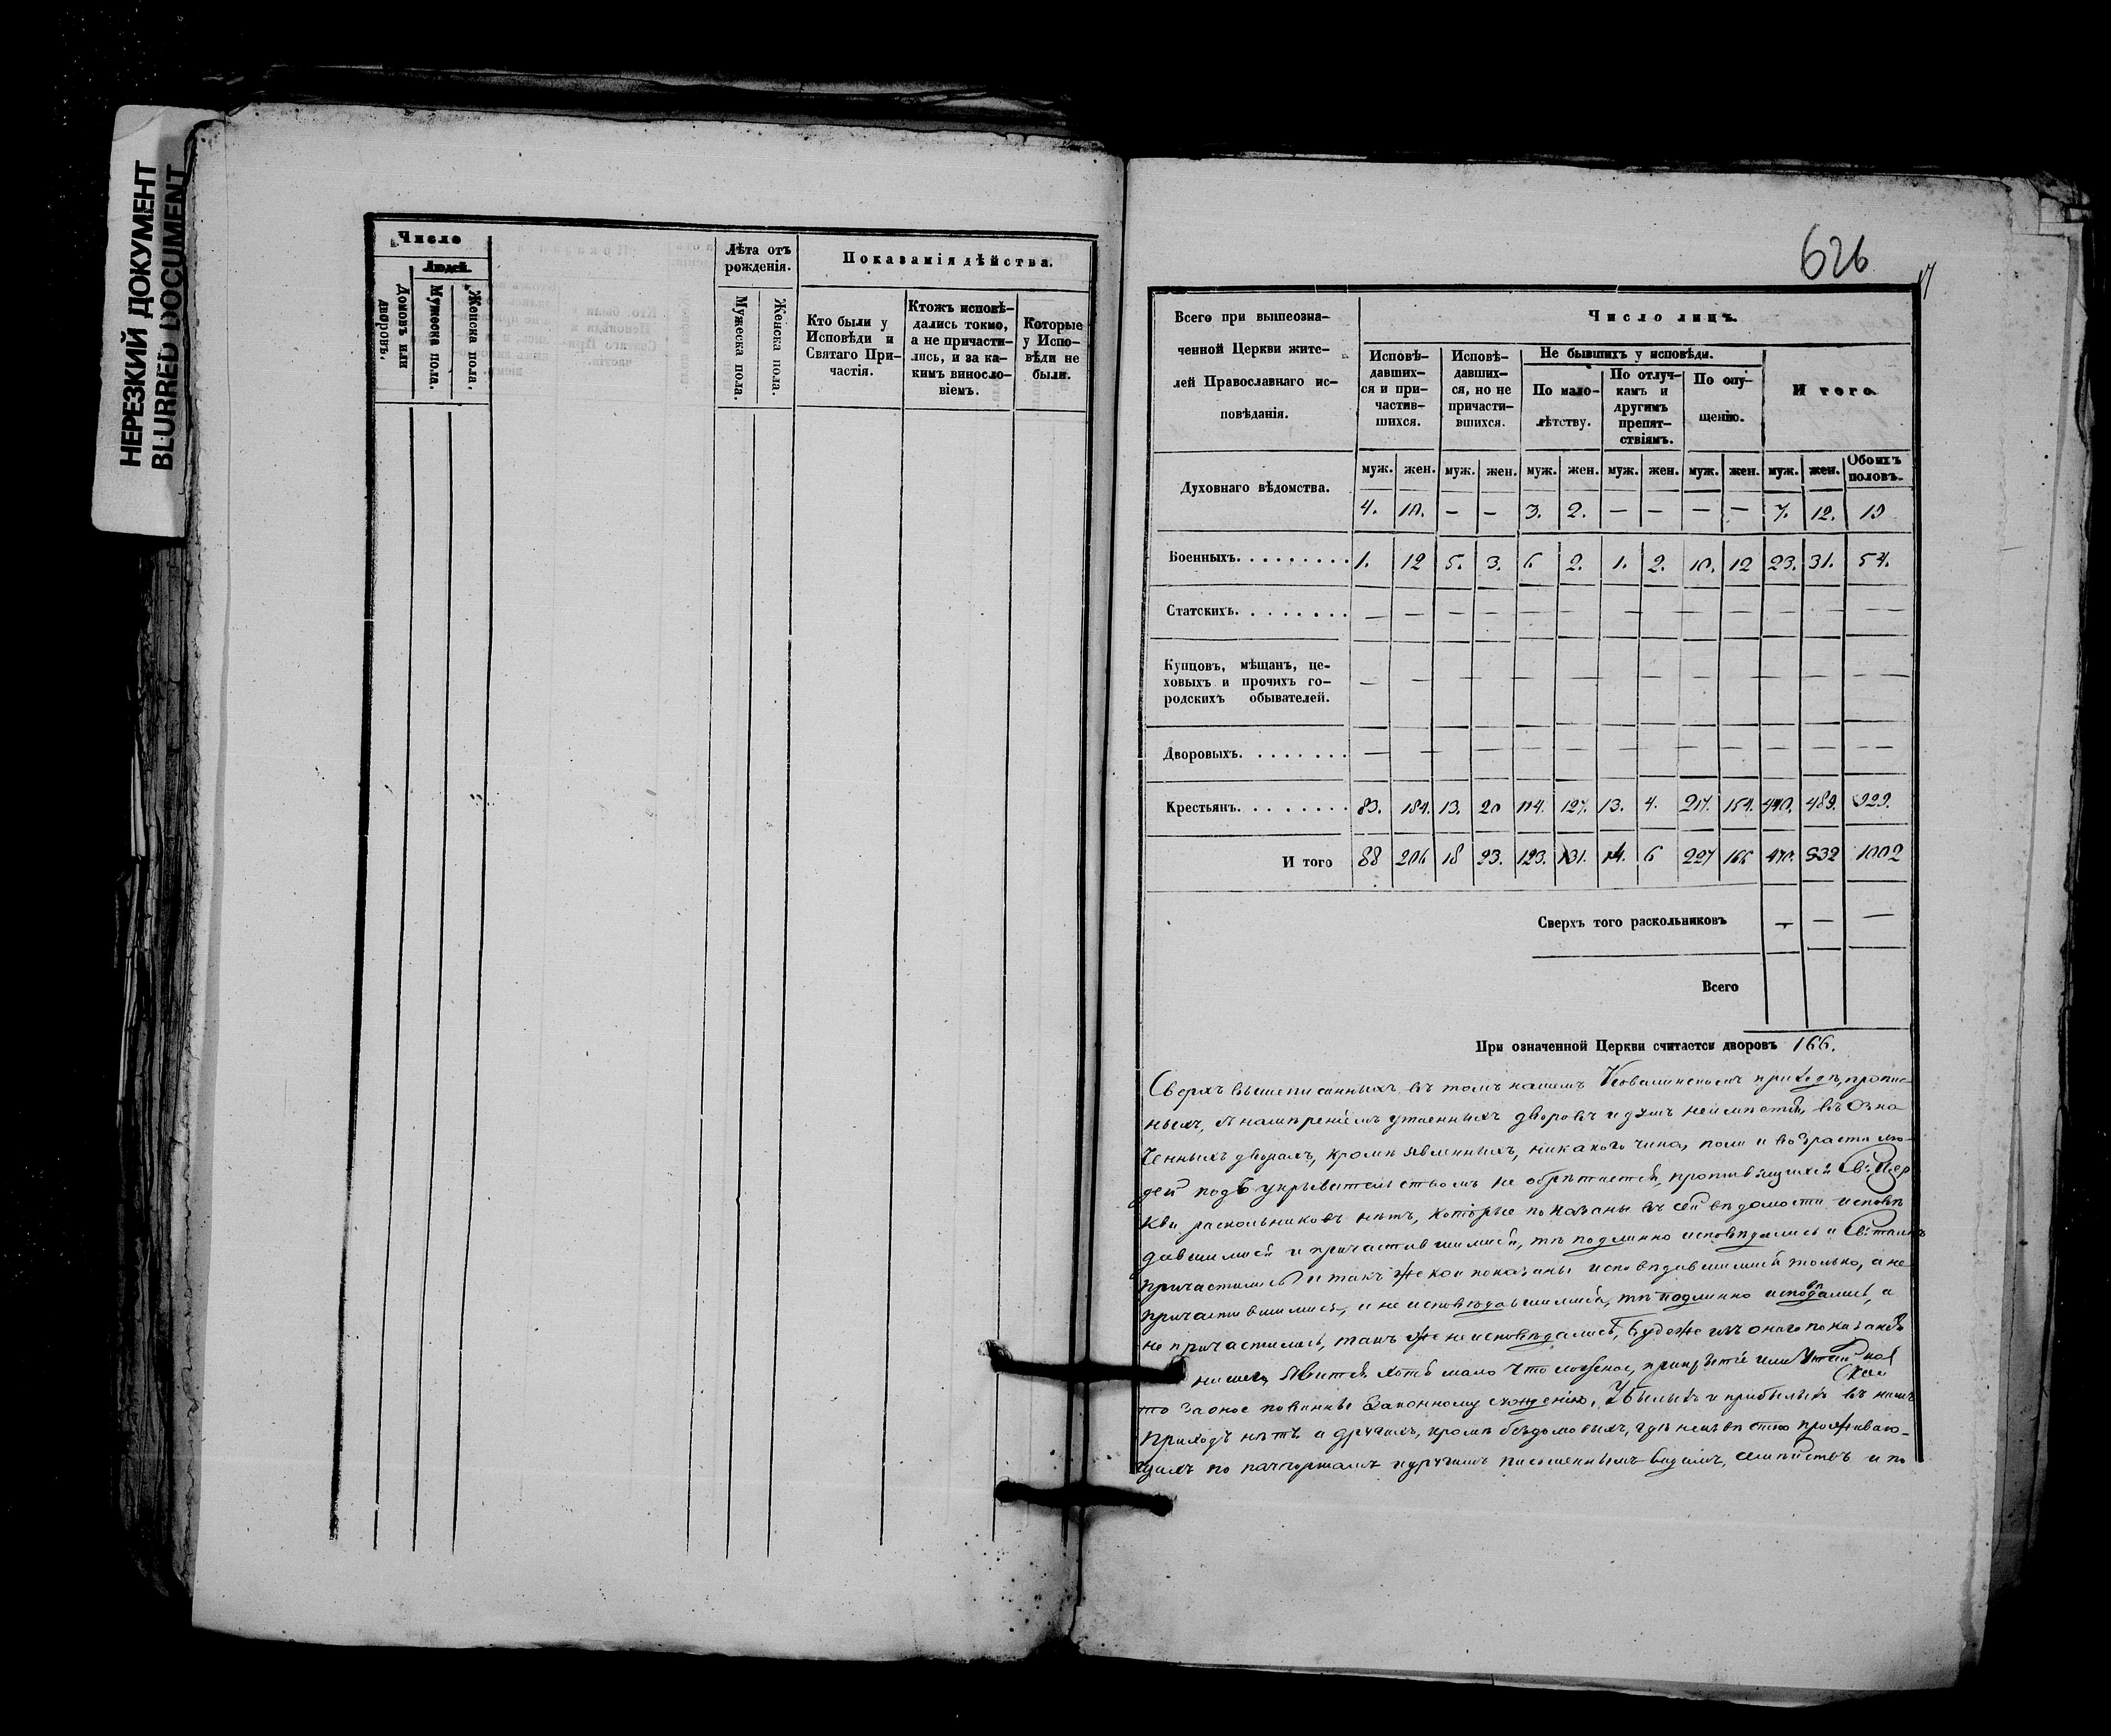 НЕРЕЗКИЙ ДОКУМЕНТ
BLURRED DOCUMENT
Число
Людей.
Домовъ или дворовъ.
Мужеска пола.
Женска пола.
Лѣта отъ рожденія.
Мужеска пола.
Женска пола.
Показанія дѣйства.
Кто были у
Исповѣди и
Святаго При-
частія.
Ктожъ исповѣ-
дались токмо,
а не причасти-
лись, и за ка-
кимъ винословіемъ.
Которые
у Испо-
вѣди не
были.
626
17
Всего при вышеозна-
ченной Церкви жите-
лей Православнаго ис-
повѣданія.
Число лицъ.
Исповѣ-
давших-
ся и при-
частив-
шихся.
Исповѣ-
давших-
ся, но не
причасти-
вшихся.
Не бывшихъ у исповѣди.
По мало-
лѣтству.
По отлуч-
камъ и
другимъ
препят-
ствіямъ.
По опу-
щенію.
И того
муж. жен. муж. жен. муж. жен. муж. жен. муж. жен. муж. жен. Обоихъ половъ.
Духовнаго вѣдомства. 4. 10. — — 3. 2. — — — — 7. 12. 19
Военныхъ. 1. 12 5. 3. 6 2. 1. 2. 10. 12 23. 31. 54.
Статскихъ. — — — — — — — — — — — — —
Купцовъ, мѣщанъ, це-
ховыхъ и прочихъ го-
родскихъ обывателей. — — — — — — — — — — — — —
Дворовыхъ. — — — — — — — — — — — — —
Крестьянъ. 83. 184. 13. 20 114. 127. 13. 4. 217. 154. 440. 489. 929.
И того 88 206 18 23. 123. 131. 14. 6 227 166 470. 532 1002
Сверхъ того раскольниковъ — — —
Всего
При означенной Церкви считается дворовъ 166.
Сверхъ вышеписанныхъ въ томъ нашемъ приходѣ, пропис-
ныхъ, и утаенныхъ дворовъ и душъ неимѣется, въ Озна
ченныхъ дворахъ, кромѣ явленныхъ, никакого чина, пола и возраста лю-
дей подъ укрывательствомъ не обрѣтается, противящихся Св: Цер
кви раскольниковъ нѣтъ, которые показаны въ сей вѣдомости исповѣ
давшимися и причастившимися, тѣ подлинно исповѣдались и Св: таинъ
причастились и такъ же кои показаны исповѣдавшимися только, а не
причастившимися, и не исповѣдавшимися, тѣ подлинно исповѣдались, а
не причастились, такъ же не исповѣдались, буде же изъ онаго показанія
нашего явится хотя мало что ложное, прикрытіе или утайка
то за оное повинны Законному сужденію. Убылыхъ и прибылыхъ въ нашемъ
приходѣ нѣтъ а другихъ, кромѣ бездомовыхъ, гдѣ неизвѣстно проживаю-
щихъ по пачпортамъ и другимъ письменнымъ видамъ, семействъ и по